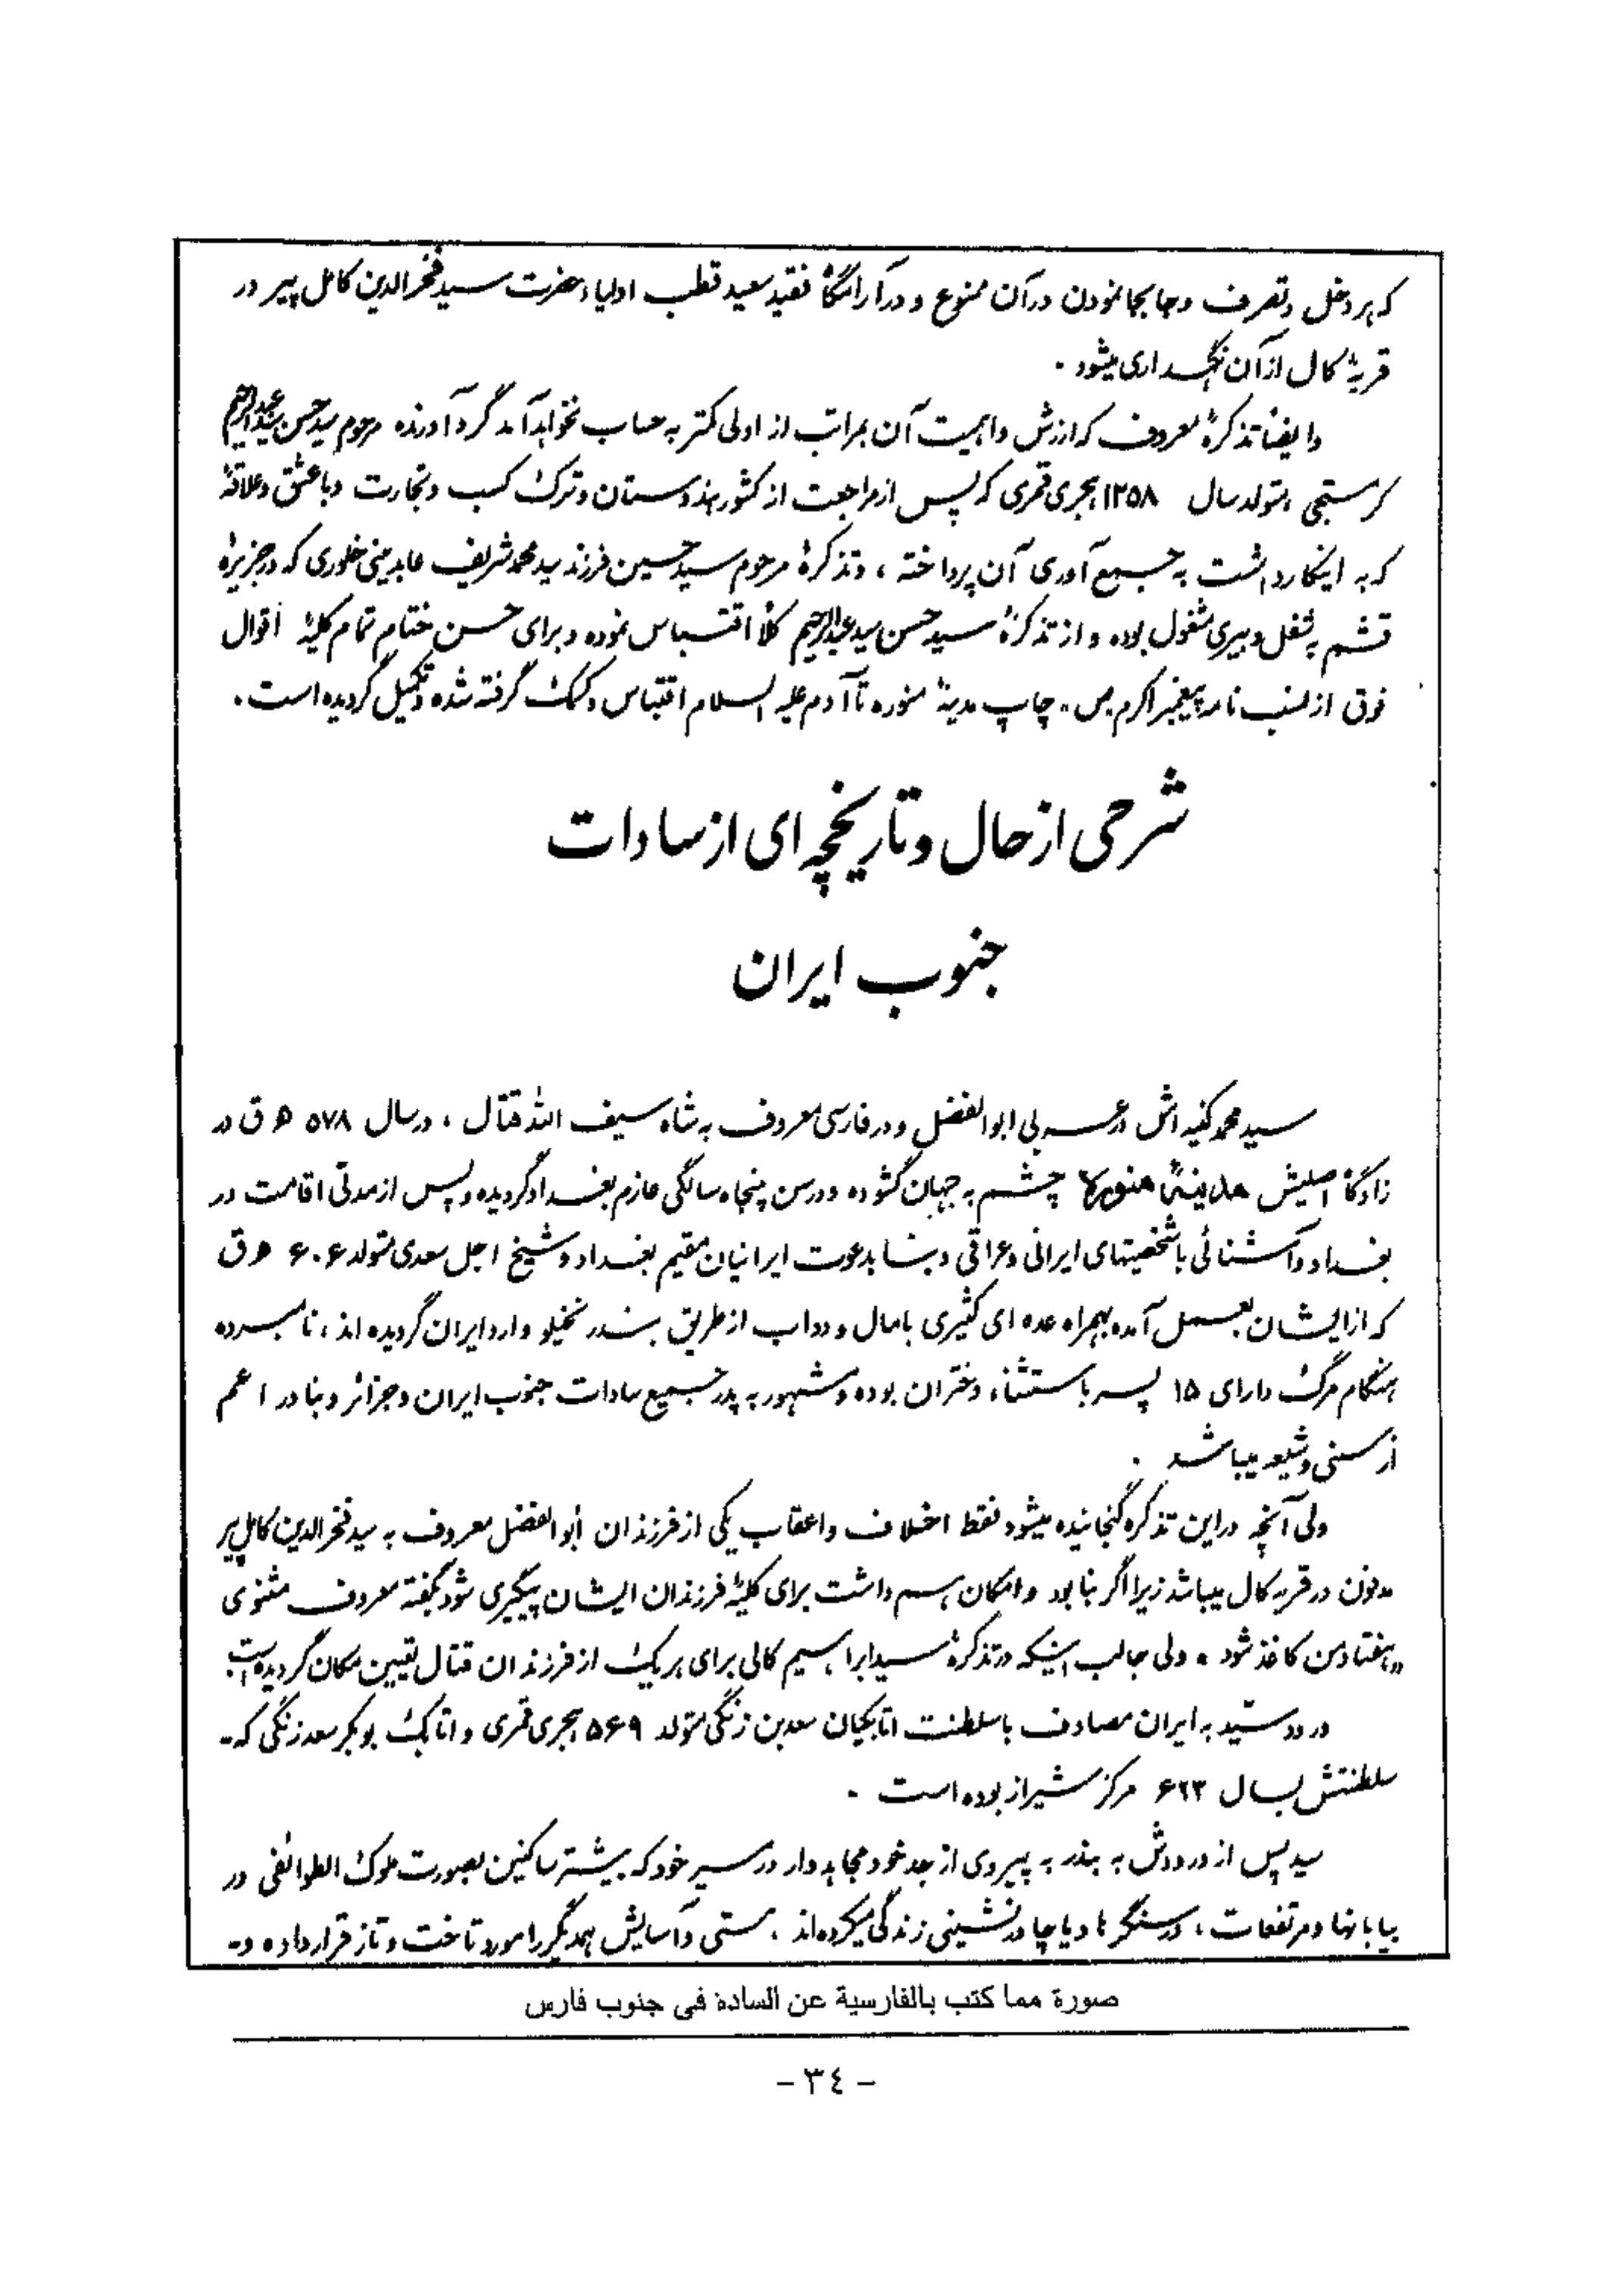 که هر دخل و تصرف و جابجا نمودن در آن ممنوع و در آرامگاه فقید سعید قطب اولیاء حضرت سید فخرالدین کامل پیر در
قریهٔ کال از آن نگهداری میشود .
و ایضاً تذکرهٔ معروف که ارزش و اهمیت آن بمراتب از اولی کمتر به حساب نخواهد آمد گرد آورنده مرحوم سید حسن سید عبدالرحیم
متولد سال ۱۲۵۸ هجری قمری که پس از مراجعت از کشور هندوستان و ترک کسب و تجارت و با عشق و علاقهٔ
که به اینکار داشت به جمع آوری آن پرداخته ، و تذکرهٔ مرحوم سید حسین فرزند سید محمد شریف که در جزیرهٔ
قشم به شغل دبیری مشغول بوده و از تذکرهٔ سید حسن سید عبدالرحیم کلاً اقتباس نموده و برای حسن ختام تمام کلیهٔ اقوال
فوق از نسب نامه پیغمبر اکرم ص ، چاپ مدینهٔ منوره تا آدم علیه السلام اقتباس و کمک گرفته شده و تکمیل گردیده است .
شرحی از حال و تاریخچه ای از سادات
جنوب ایران
سید محمد کنیه اش در عربی ابوالفضل و در فارسی معروف به شاه سیف الله قتال ، در سال ۵۷۸ ه ق در
زادگاه اصلیش مدینهٔ منوره چشم به جهان گشوده و در سن پنجاه سالگی عازم بغداد گردیده و پس از مدتی اقامت در
بغداد و آشنائی با شخصیتهای ایرانی و عراقی و بنا بدعوت ایرانیان مقیم بغداد و شیخ اجل سعدی متولد ۶۰۶ ه ق
که از ایشان بعمل آمده بهمراه عده ای کثیری با مال و دواب از طریق بندر نخیلو وارد ایران گردیده اند ، نامبرده
هنگام مرگ دارای ۱۵ پسر با ستثناء دختران بوده و مشهور به پدر جمیع سادات جنوب ایران و جزائر و بنادر اعم
از سنی و شیعه میباشد .
ولی آنچه در این تذکره گنجانیده میشود فقط اخلاف و اعقاب یکی از فرزندان أبوالفضل معروف به سید فخرالدین کامل پیر
مدفون در قریه کال میباشد زیرا اگر بنا بود و امکان هم داشت برای کلیهٔ فرزندان ایشان پیگیری شود بگفته معروف مثنوی
„ هفتاد من کاغذ شود " ولی جالب اینکه در تذکرهٔ سید ابراهیم کالی برای هریک از فرزندان قتال تعیین مکان گردیده است
ورود سید به ایران مصادف با سلطنت اتابکیان سعد بن زنگی متولد ۵۶۹ هجری قمری و اتابک بوبکر سعد زنگی که -
سلطنتش بسال ۶۲۳ مرکز شیراز بوده است .
سید پس از ورودش به بندر به پیروی از جد خود مجاهد وار در مسیر خود که بیشتر ساکنین بصورت ملوک الطوائفی در
بیابانها و مرتفعات ، در سنگرها و یا چادر نشینی زندگی میکرده اند ، سستی و آسایش همدیگر را مورد تاخت و تاز قرار داده و -
صورة مما كتب بالفارسية عن السادة في جنوب فارس
- ٣٤ -